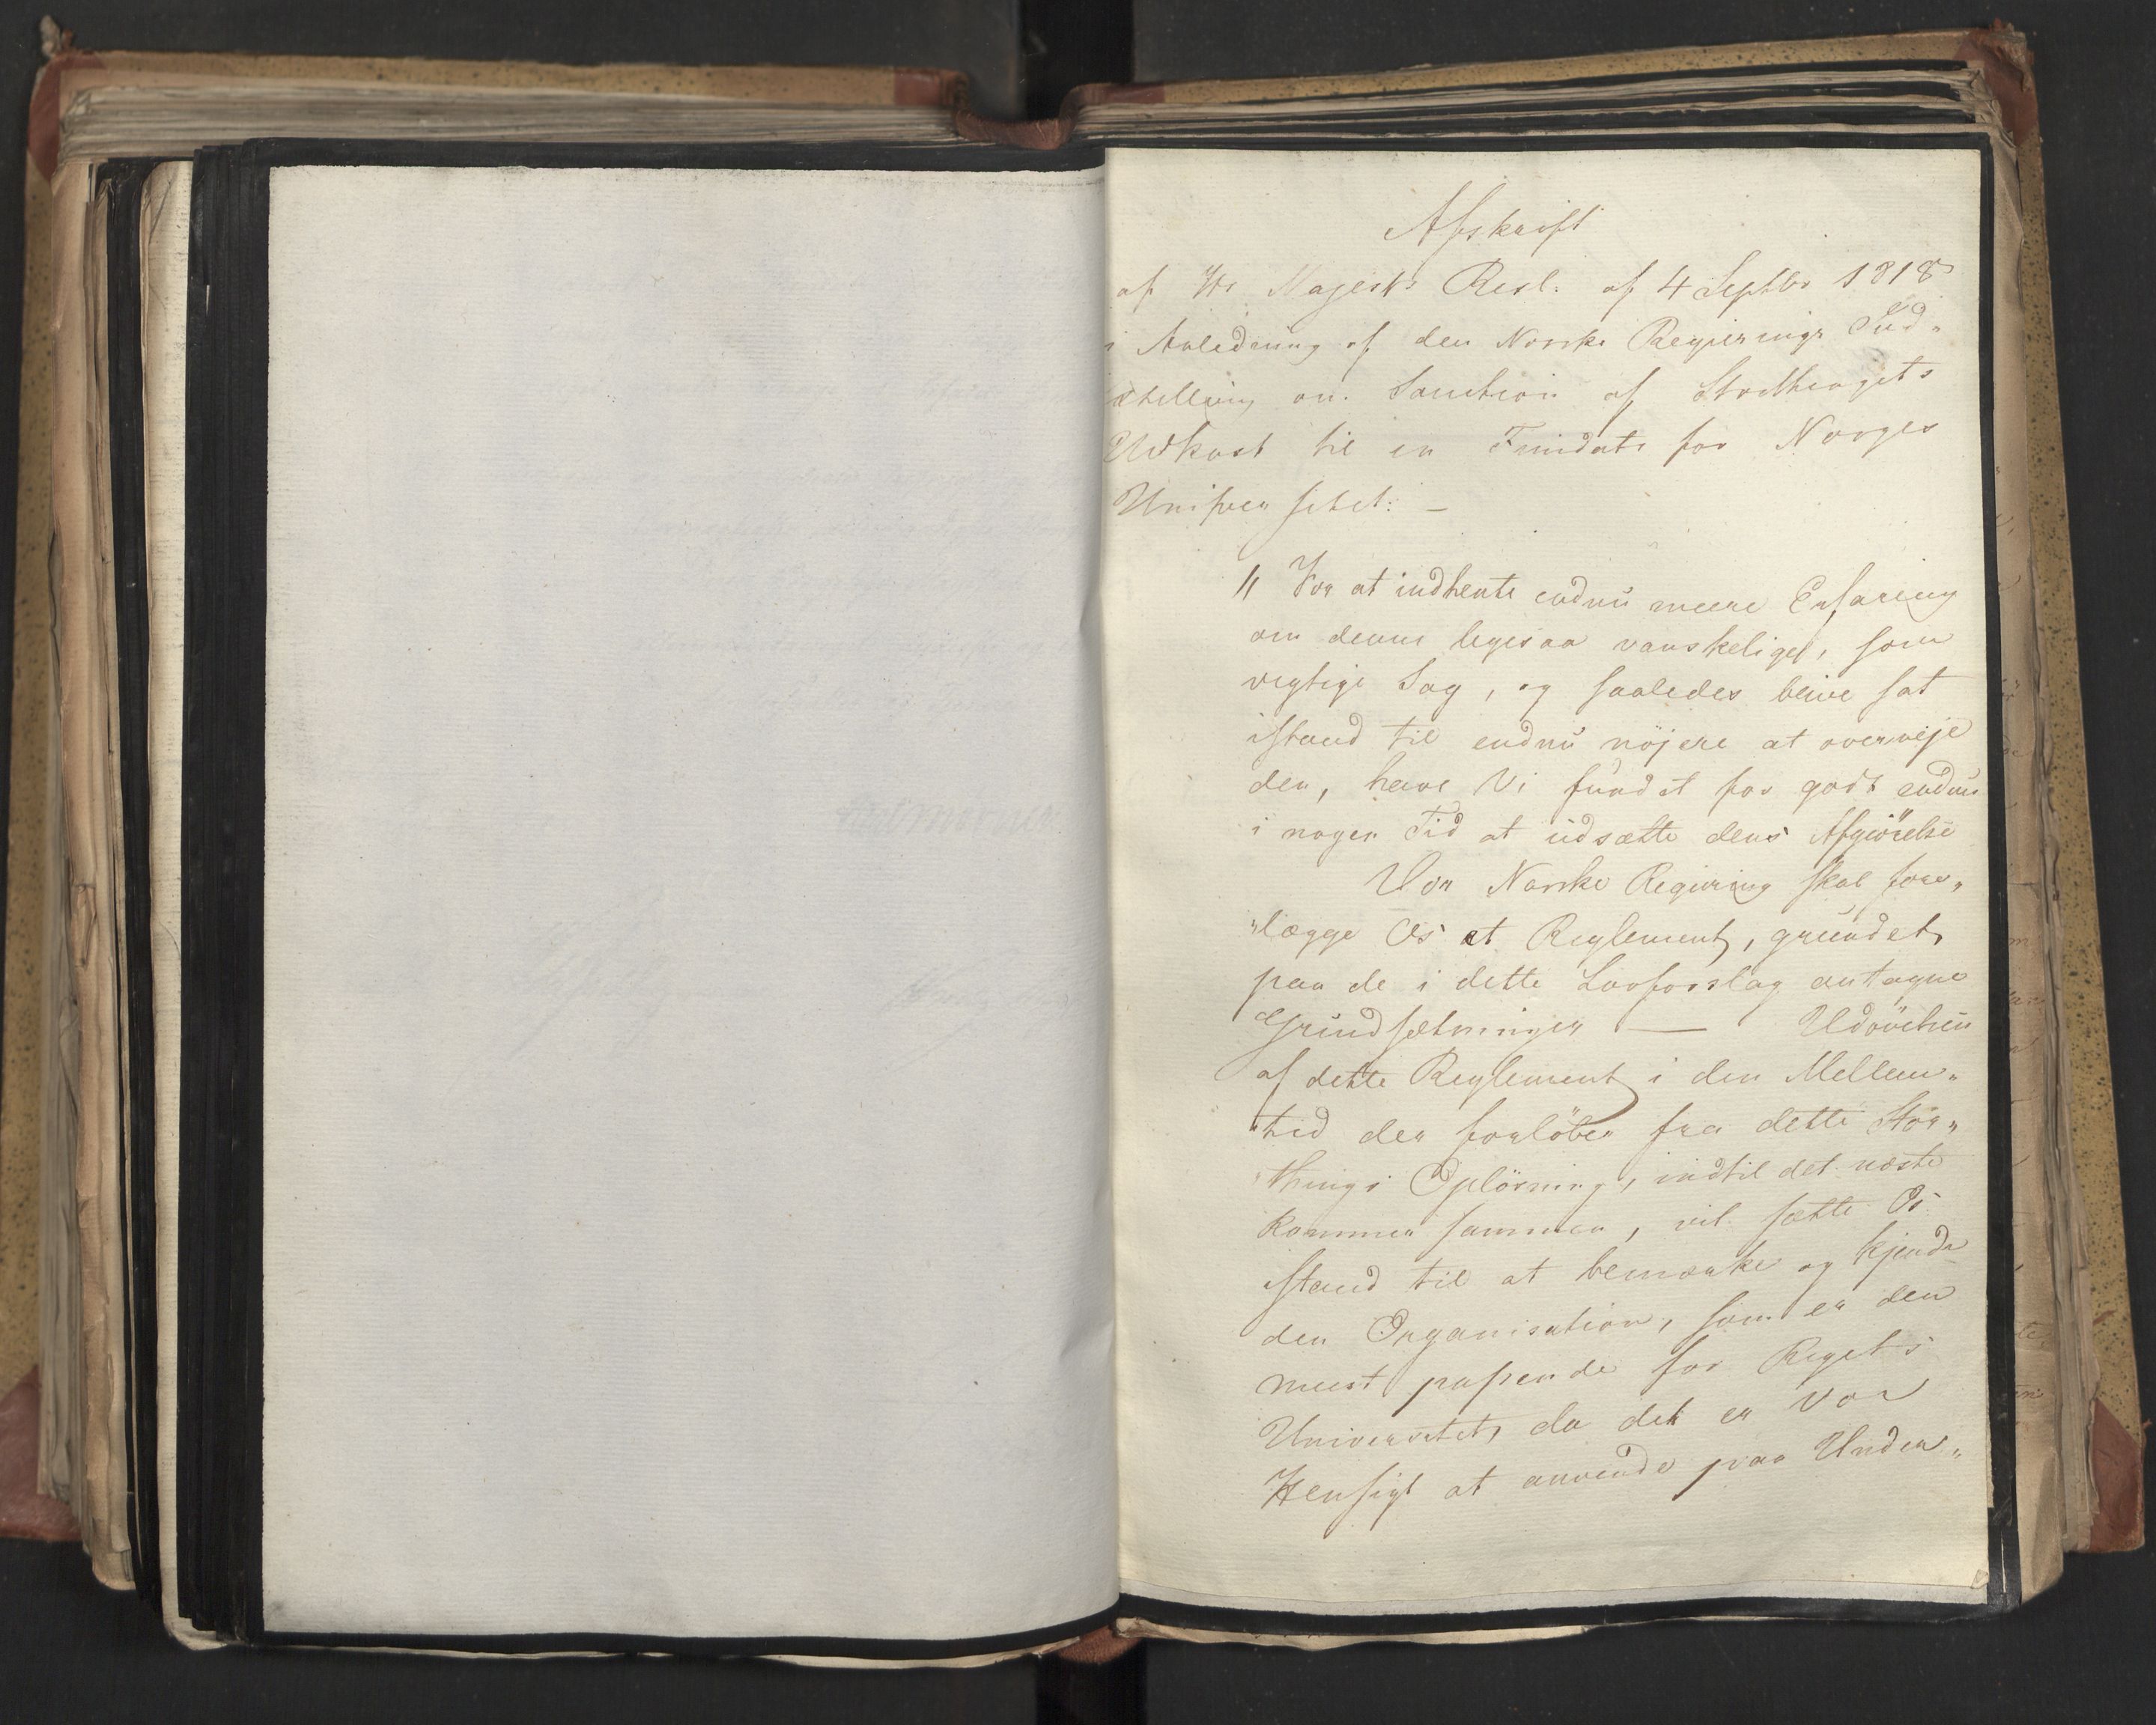 Afskrift
af Hs Majests Resl: af 4 Septbr 1818
i Anledning af den Norske Regjerings Ind„
stilling om Sanction af Storthingets
Udkast til en Fundats for Norges
Universitet: —
"For at indhente endnu meere Erfaring
om denne ligesaa vanskelige, som
vigtige Sag, og saaledes blive sat
istand til endnu nöjere at overveje
den, have Vi fundet for godt endnu
i nogen Tid at udsætte dens Afgiörelse
Vor Norske Regiering skal fore„
„lægge Os et Reglement, grundet
paa de i dette Lovforslag antagne
Grundsætninger — Udövelsen
af dette Reglement i den Mellem„
„tid der forlöber fra dette Stor„
„things Oplösning, indtil det næste
kommer sammen, vil sætte Os
istand til at bemærke og kjende
den Organisation, som er den
meest passende for Rigets
Universitet, da det er Vor
Hensigt at anvende paa Under„